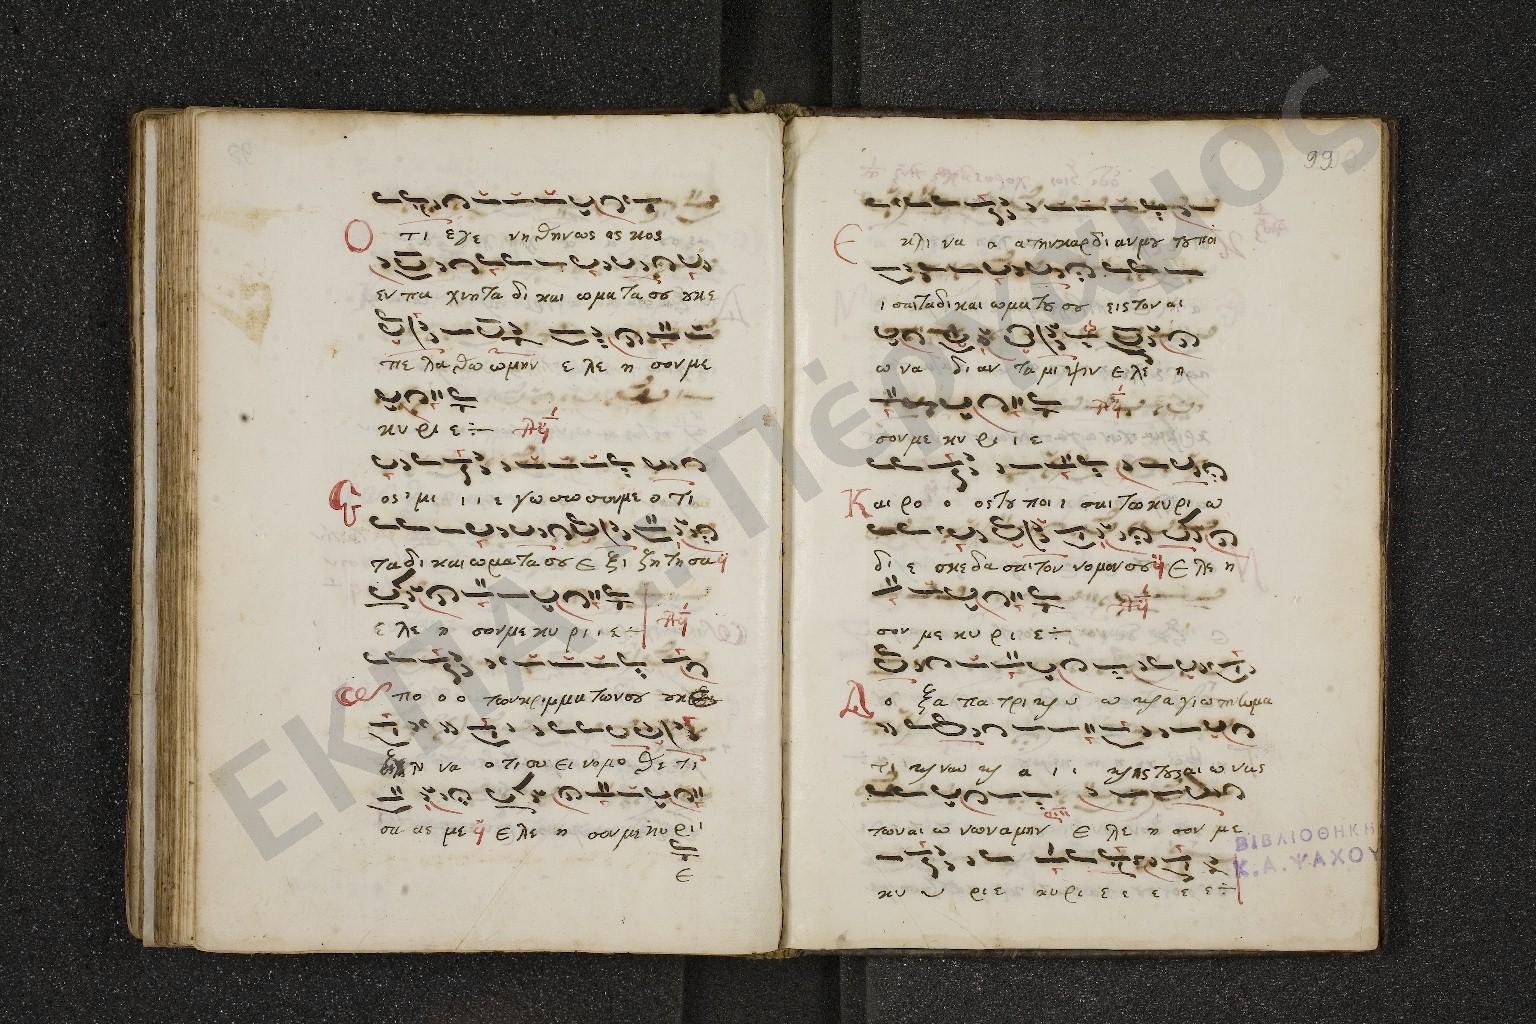 Ο τι εγε νηθηνως ας κος
εν πα χνητα δι και ωματα σου ουκε
πε λα θω ωμην ε λε η σον με
κυ ρι ε
ος ι μι ι ι ε γω σω σον με ο τι
τα δι και ωματα σου ε ξε ζη τη σα
ε λε η σον με κυ ρι ι ε
πο ο ο των κριμμα των σου ουκ
να ο τι συ ε νομο θε τι
σα ας με ε λε η σον με κυ ρι ι
ε
99
Ε κλι να α α την καρδι αν μου του ποι
ι σαι τα δι και ωματα σου εις τον αι
ω να δι αν τα μι ψην ε λε η
σον με κυ ρι ι ε
Και ρο ο ος του ποι ι σαι τω κυρι ω
δι ε σκε δα σαι τον νομον σου ε λε η
σον με κυ ρι ι ε
Δ ο ξα πα τρι και υ ω και αγιω πν
τι και νυν και α ι ι και εις τους αι ω νας
των αι ω νων αμην ε λε η σον με
κυ υ ρι ε κυ ρι ε ε ε ε ε
ΒΙΒΛΙΟΘΗΚΗ
Κ. Α. ΨΑΧΟΥ
ΕΚΠΑ. Πέργαμος